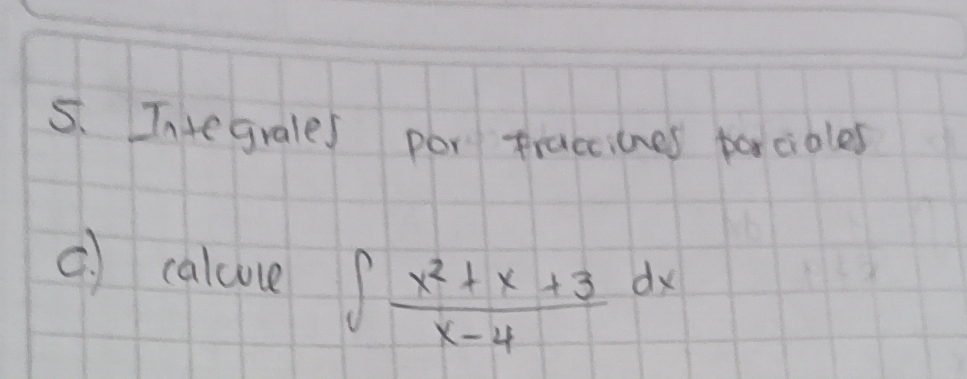 5. Integrales por fracciones parciales
c.) calcule ∫ x² + x + 3 / x - 4 dx